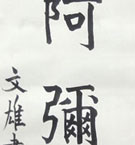 阿彌
文雄書